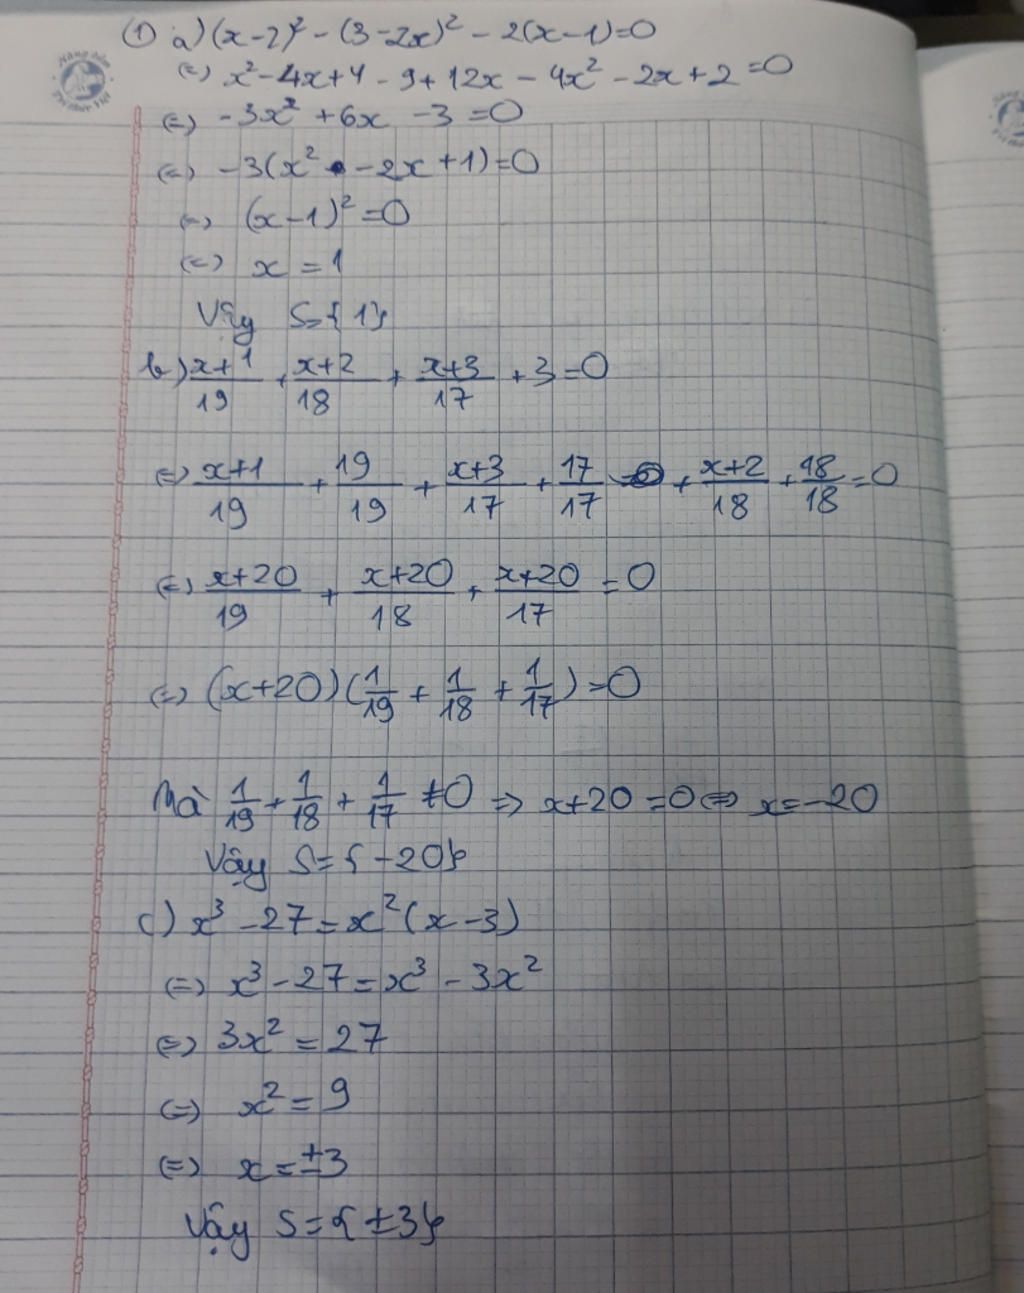 ① a) (x-2)² - (3-2x)² - 2(x-1)=0
(=) x²-4x+4 - 9+12x - 4x² - 2x+2=0
(=) -3x² +6x -3=0
(=) -3(x² -2x+1)=0
(=) (x-1)²=0
(=) x=1
Vậy S={1}
b) \frac{x+1}{19} + \frac{x+2}{18} + \frac{x+3}{17} +3=0
(=) \frac{x+1}{19} + \frac{19}{19} + \frac{x+3}{17} + \frac{17}{17} + \frac{x+2}{18} + \frac{18}{18} =0
(=) \frac{x+20}{19} + \frac{x+20}{18} + \frac{x+20}{17} =0
(=) (x+20)(\frac{1}{19} + \frac{1}{18} + \frac{1}{17})=0
Mà \frac{1}{19} + \frac{1}{18} + \frac{1}{17} ≠0 => x+20=0 <=> x=-20
Vậy S={-20}
c) x³-27=x²(x-3)
(=) x³-27=x³-3x²
(=) 3x²=27
(=) x²=9
(=) x=±3
Vậy S={±3}